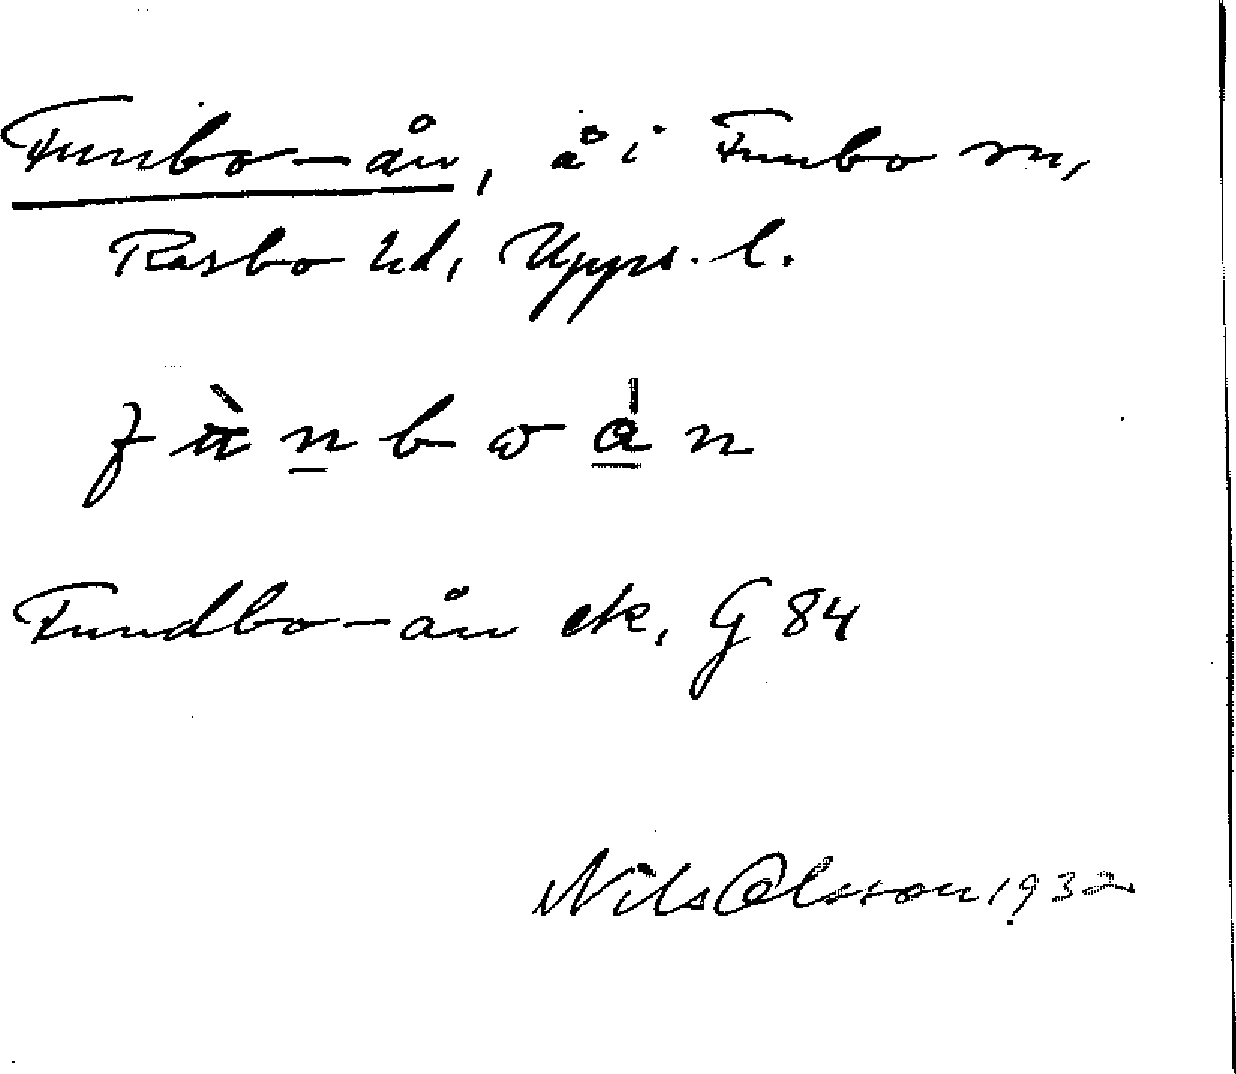 Funbo-ån, å i Funbo sn,
Rasbo hd, Upps. l.
fùnboån
Fundbo-ån ek. G 84
Nils Olsson 1932